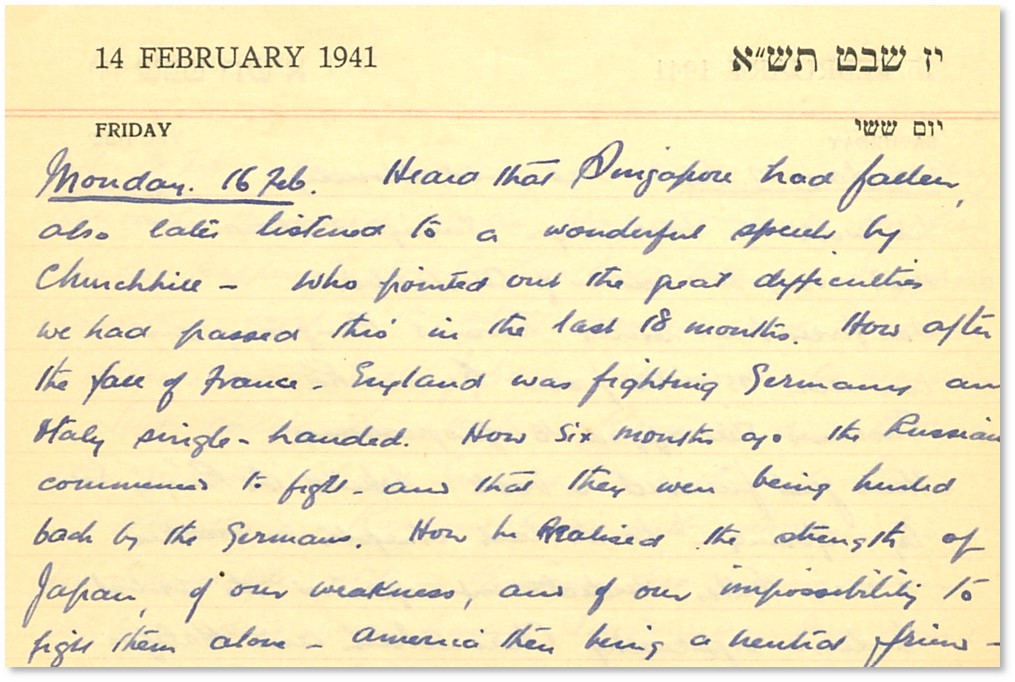 14 FEBRUARY 1941 יז שבט תש״א
FRIDAY יום ששי
Monday. 16 Feb. Heard that Singapore had fallen,
also later listened to a wonderful speech by
Churchhill - Who pointed out the great difficulties
we had passed thro' in the last 18 months. How after
the fall of France - England was fighting Germany an
Italy single-handed. How six months ago the Russian
commenced to fight - and that they were being hurled
back by the Germans. How he Realised the strength of
Japan, of our weakness, and of our impossibility to
fight them alone - America then being a neutral friend -